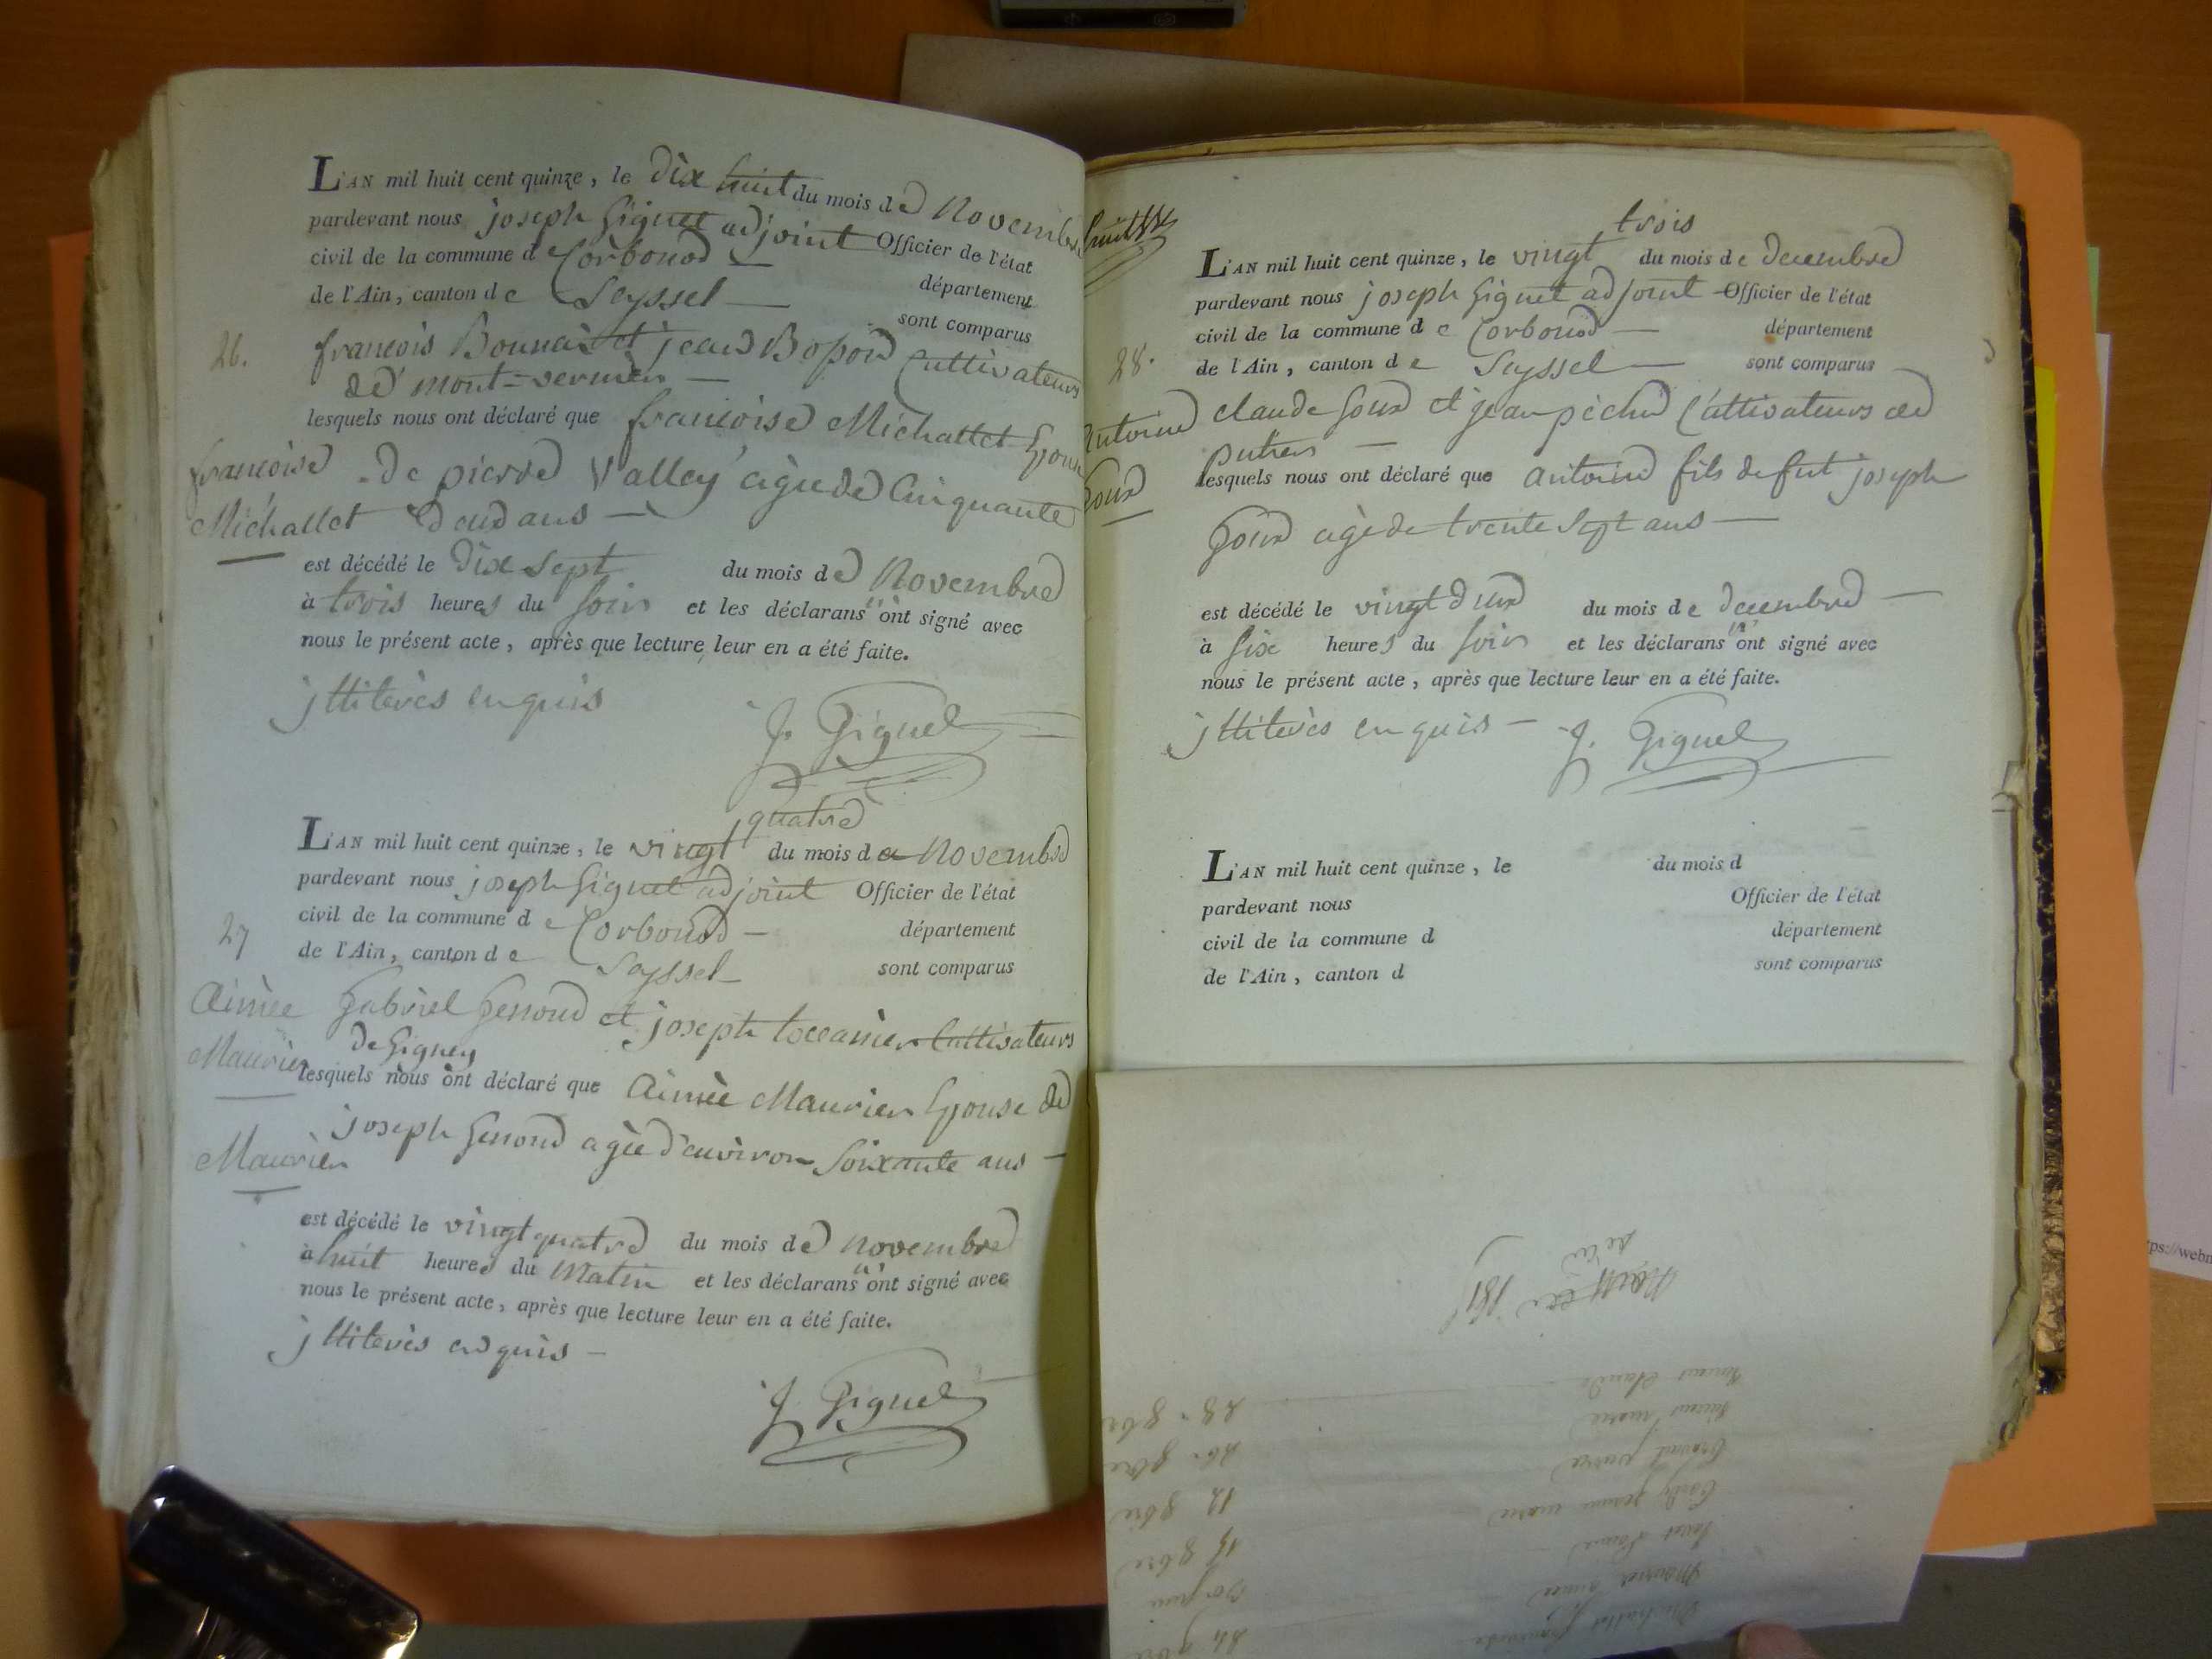 L'AN mil huit cent quinze, le dix huit du mois de Novembre
pardevant nous joseph Giguet adjoint Officier de l'état
civil de la commune de Corbonod — département
de l'Ain, canton de Seyssel — sont comparus
26.
françois et jean Cultivateurs
de mont-vermier —
lesquels nous ont déclaré que françoise Michallet Epouse
françoise
Michallet
de pierre Valley agée de Cinquante
deux ans —
est décédé le dix sept du mois de Novembre
à trois heures du soir et les déclarans n'ont signé avec
nous le présent acte, après que lecture leur en a été faite.
jlliterés enquis
J. Giguet
quatre
L'AN mil huit cent quinze, le vingt du mois de Novembre
pardevant nous joseph Giguet adjoint Officier de l'état
civil de la commune de Corbonod — département
de l'Ain, canton de Seyssel — sont comparus
27
Aimée
Maurier
Gabriel Genoud et joseph Cultivateurs
de Gigney
lesquels nous ont déclaré que Aimée Maurier Epouse de
joseph Genoud agée d'environ Soixante ans —
Maurier
est décédé le vingt quatre du mois de novembre
à huit heures du Matin et les déclarans n'ont signé avec
nous le présent acte, après que lecture leur en a été faite.
jlliterés enquis —
J. Giguet
trois
L'AN mil huit cent quinze, le vingt du mois de decembre
pardevant nous joseph Giguet adjoint Officier de l'état
civil de la commune de Corbonod — département
de l'Ain, canton de Seyssel — sont comparus
28.
Antoine
Goux
claude Goux et jean péchu Cultivateurs de
lesquels nous ont déclaré que antoine fils de fut joseph
Goux agé de trente Sept ans —
est décédé le vingt deux du mois de decembre —
à six heures du soir et les déclarans n'ont signé avec
nous le présent acte, après que lecture leur en a été faite.
jlliterés enquis — J. Giguet
L'AN mil huit cent quinze, le du mois d
pardevant nous Officier de l'état
civil de la commune d département
de l'Ain, canton d sont comparus
1815
claude
28. 9bre
marie
26. 9bre
pierre
12 9bre
jeanne marie
15 9bre
Maurier aimée
Michallet françoise